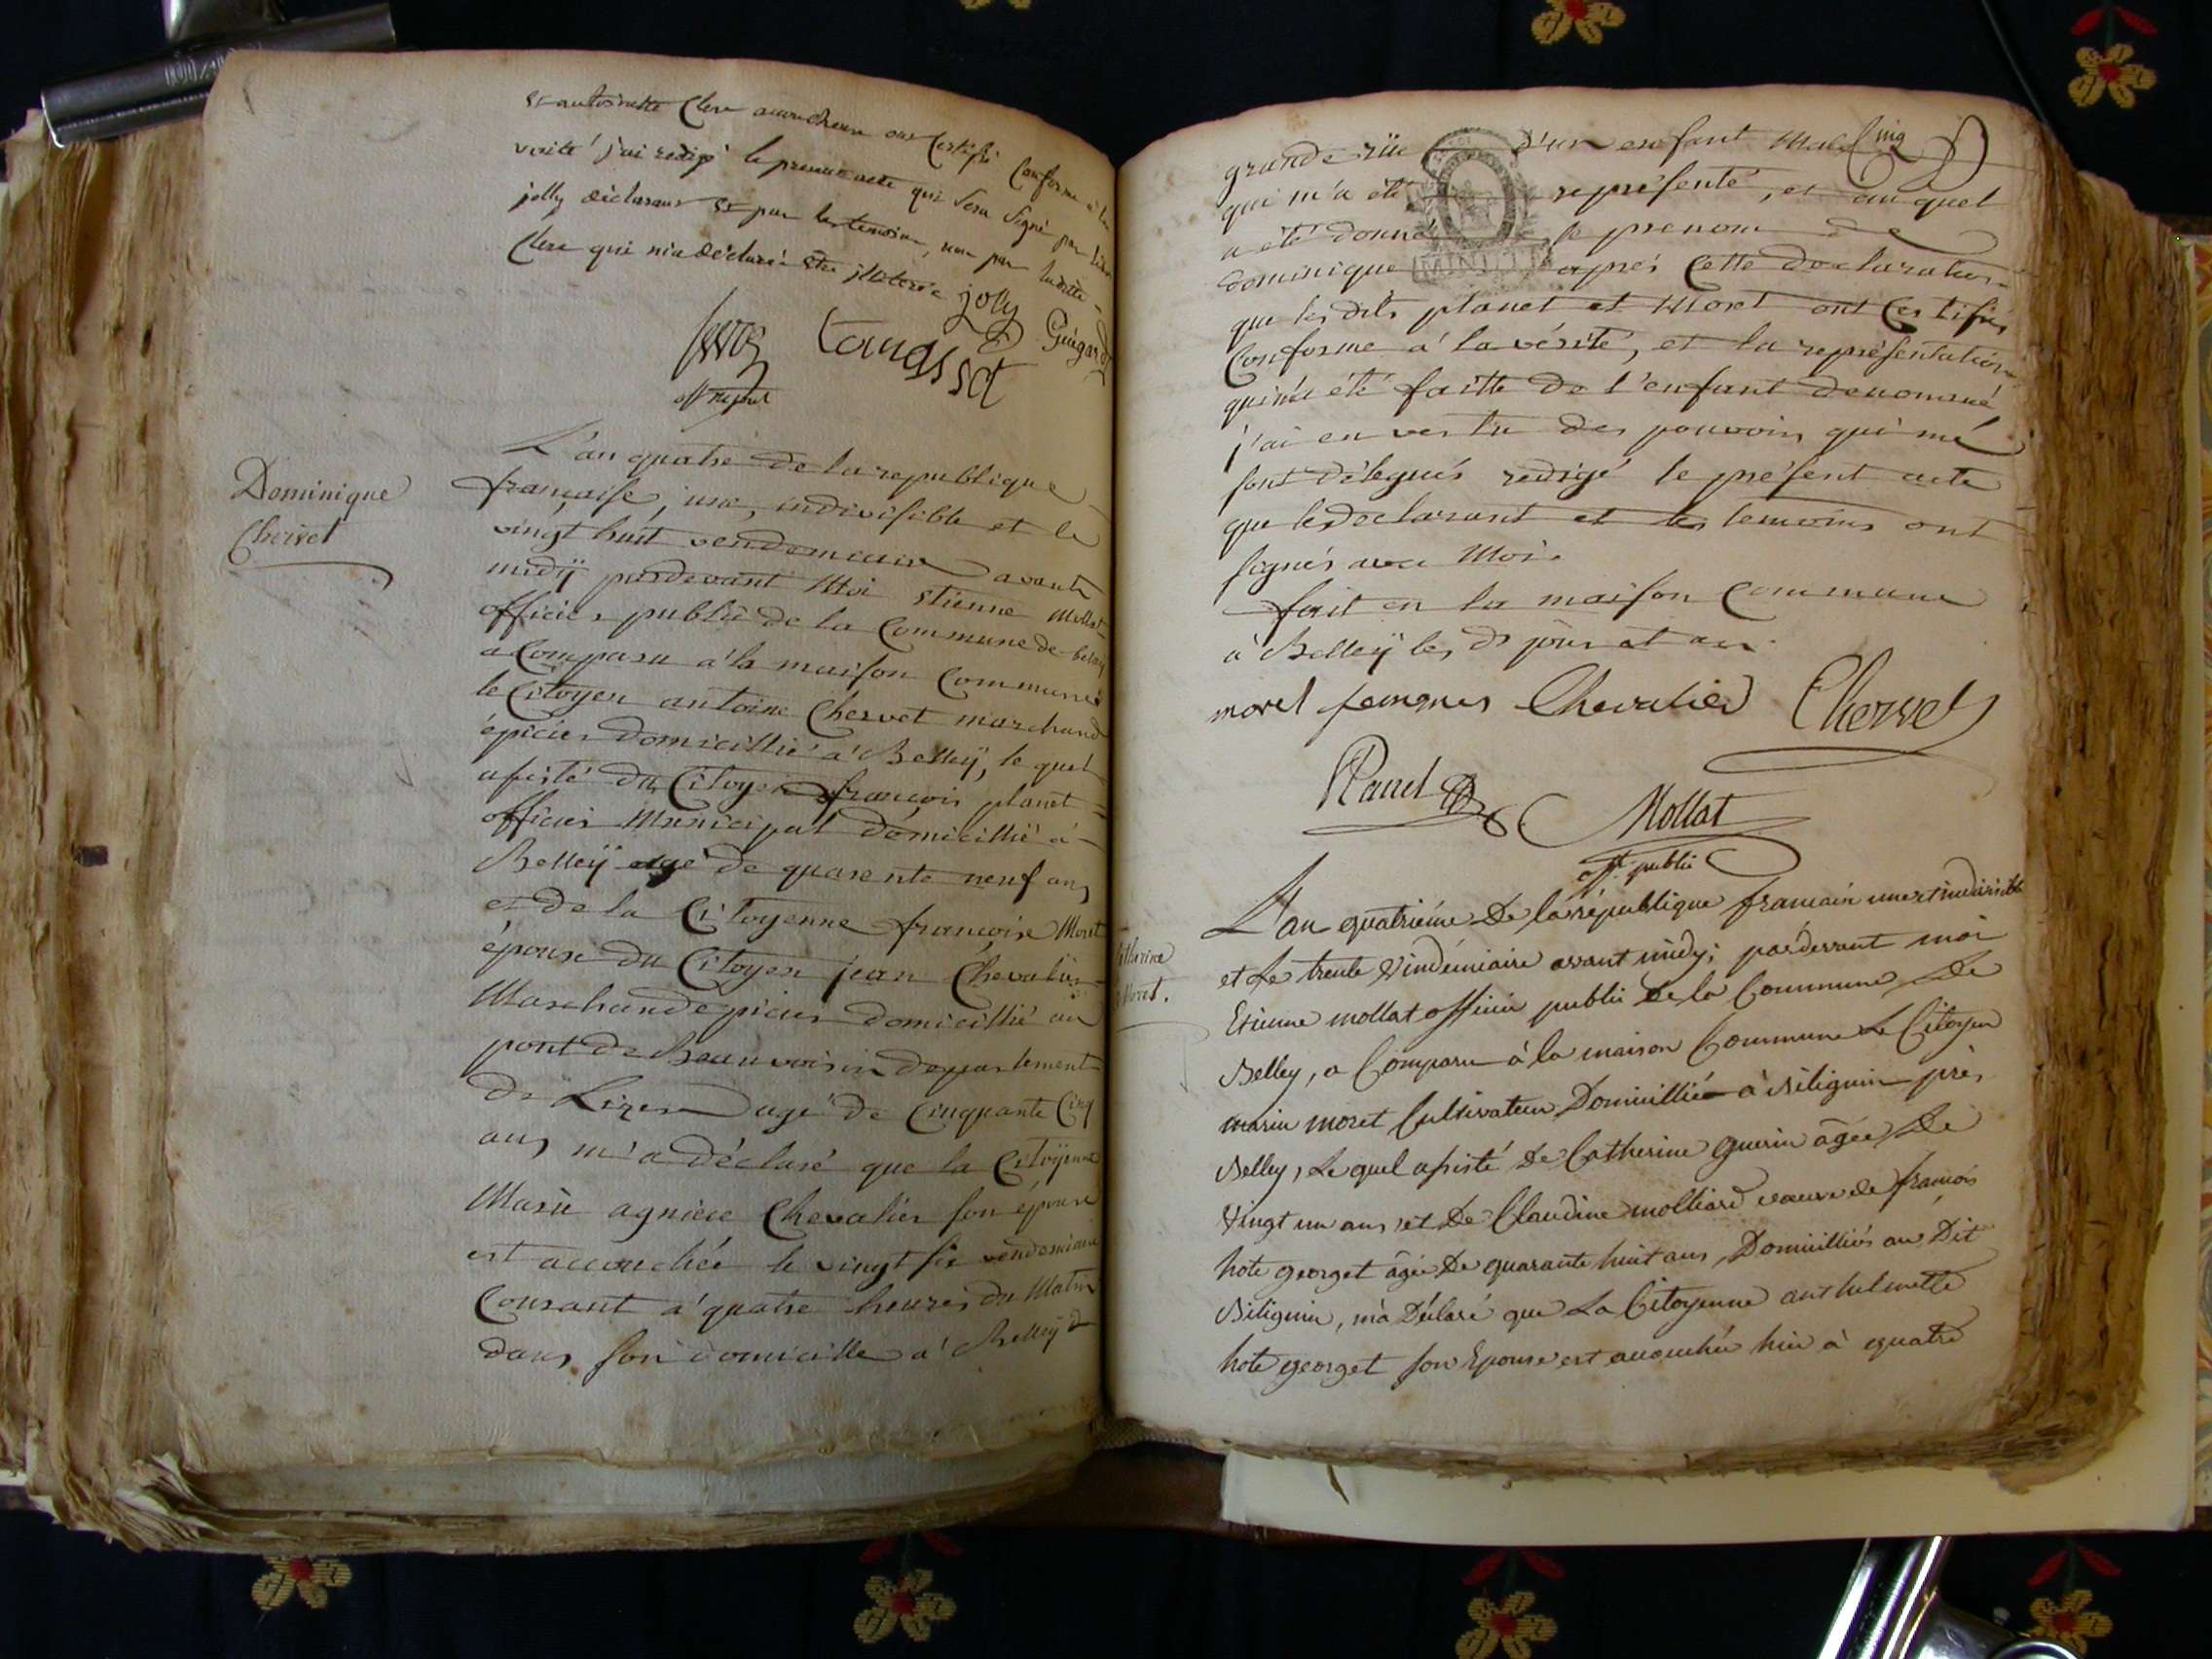 et antoinette Clerc accoucheuse ont Certifié Conforme à la
verité j'ai redigé le present acte qui Sera Signé par
jolly déclarant et par les temoins, non par laditte
Clerc qui m'a déclaré être illiterée
jolly
Guigard
tanasset
off public
Dominique
Chervet
L'an quatre de la republique
française, une, indivisible et le
vingt huit vendemiaire avant
midÿ pardevant Moi etienne Mollat
officier public de la Commune de belley
a Comparu a la maison Commune
le Citoyen antoine Chervet marchand
épicier domicillié a Belleÿ, le quel
assisté du Citoyen françois planet
officier Municipal domicillié a
Belleÿ agé de quarente neuf ans
et de la Citoyenne francoise Moret
épouse du Citoyen jean Chevalier
Marchand epicier domicillié au
pont de Beauvoisin departement
de Lizere agé de Cinquante Cinq
ans m'a déclaré que la Citoÿenne
Marie agniece Chevalier son épouse
est accouchée le vingt six vendemiaire
Courant a quatre heures du Matin
dans son domicille a Belleÿ
Cinq
grande rüe d'un enfant Male
qui m'a eté représenté, et au quel
a été donné le prenom de
dominique après Cette declaration
que les dits planet et Moret ont Certifiés
Conforme à la vérité, et la représentation
qui m'a été faitte de l'enfant denommé
j'ai en vertu des pouvoirs qui me
sont délegués redigé le présent acte
que le declarant et les temoins ont
signés avec Moi.
fait en la maison Commune
à Belleÿ les ds jour et an.
moret femmes Chevalier Chervet
Planet
Mollat
off. public
Catherine
Moret.
L'an quatriéme de la république francain une et indivisible
et le trente Vindémiaire avant midy; pardevant moi
Etienne mollat officier public de la Commune de
Belley, a Comparu à la maison Commune Le Citoyen
marin moret Cultivateur Domicillié à Bilignin près
Belley, Le quel assisté de Catherine guerin âgée de
Vingt un ans et de Claudine molliard veuve de francois
hote georget âgée de quarante huit ans, Domicilliés au Dit
Bilignin, m'a Déclaré que La Citoyenne anthelmette
hote georget son Epouse est accouchée hier à quatre